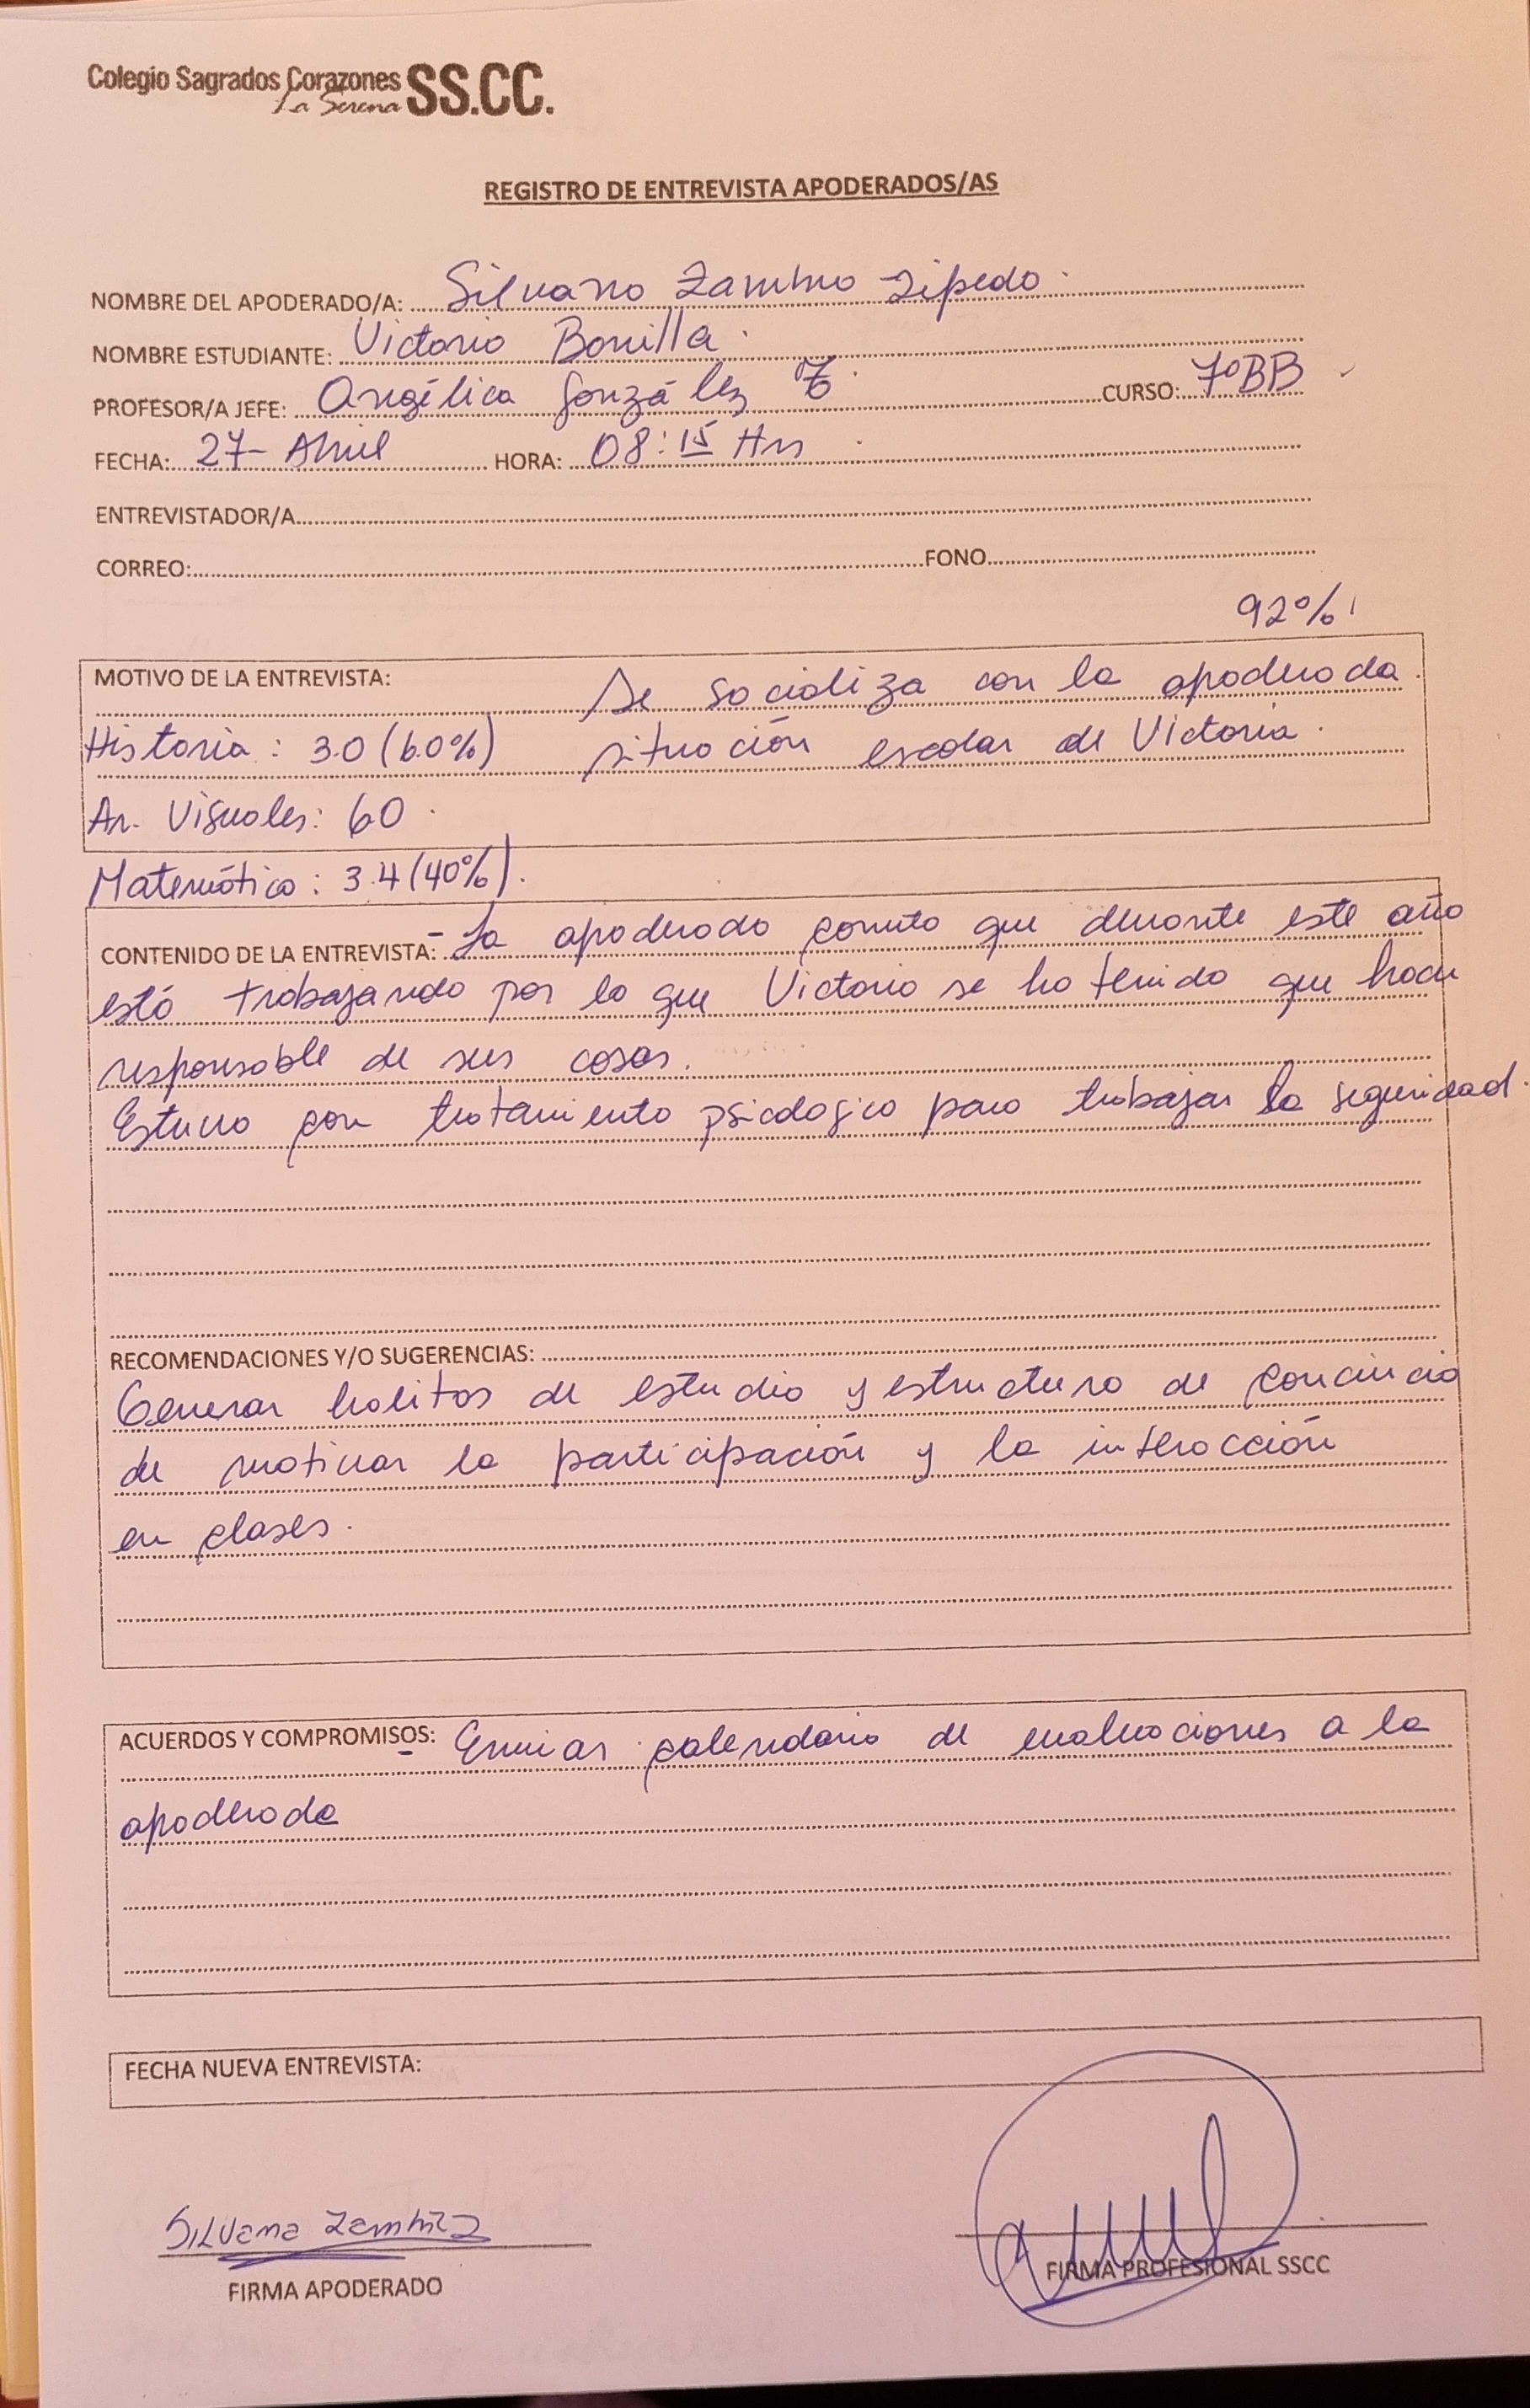 Colegio Sagrados Corazones SS.CC.
La Serena
REGISTRO DE ENTREVISTA APODERADOS/AS
NOMBRE DEL APODERADO/A: Silvana
NOMBRE ESTUDIANTE: Victoria Bonilla
PROFESOR/A JEFE: Angélica González CURSO: 7ºBB
FECHA: 27- Abril HORA: 08:15 Hrs
ENTREVISTADOR/A
CORREO: FONO
92%
MOTIVO DE LA ENTREVISTA: Se socializa con la apoderada
Historia: 3.0 (60%) situación escolar de Victoria.
Ar. Visuales: 60
Matemática: 3.4 (40%).
CONTENIDO DE LA ENTREVISTA: - La apoderada comenta que durante este año
está trabajando por lo que Victoria se ha tenido que hacer
responsable de sus cosas.
Estuvo con tratamiento psicologico para trabajar la seguridad.
RECOMENDACIONES Y/O SUGERENCIAS:
Generar habitos de estudio y estructura de conciencia
de motivar la participación y la interacción
en clases.
ACUERDOS Y COMPROMISOS: - Enviar calendario de evaluaciones a la
apoderada
FECHA NUEVA ENTREVISTA:
Silvana
FIRMA APODERADO
FIRMA PROFESIONAL SSCC